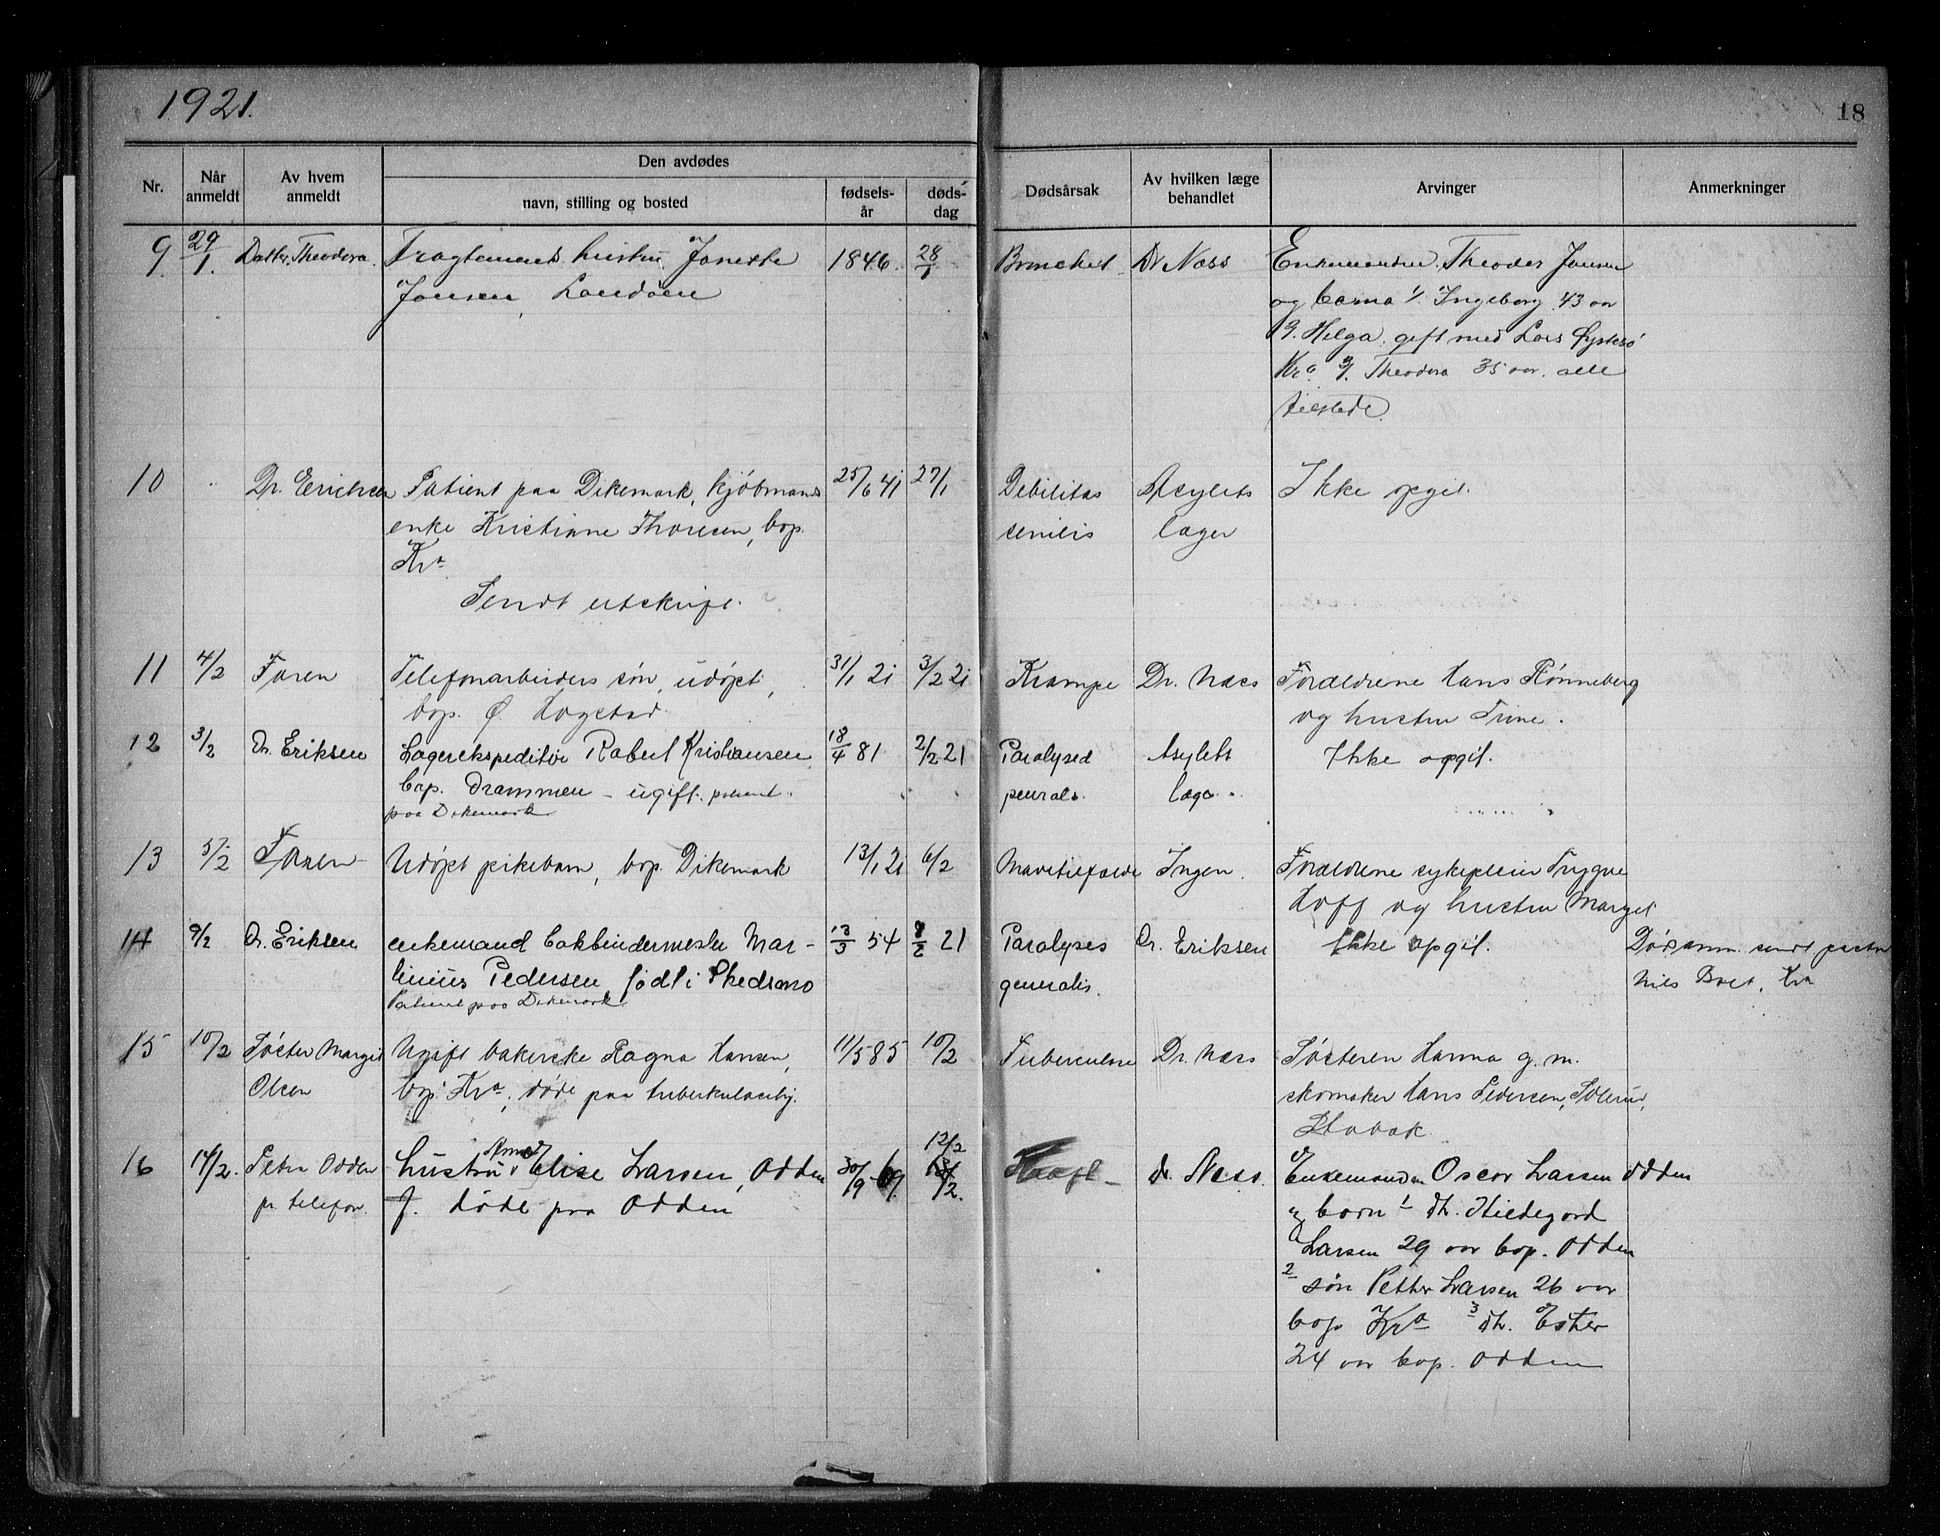 1921.
18
Nr.
Når anmeldt
Av hvem anmeldt
Den avdødes
navn, stilling og bosted
fødsels-år
døds-dag
Dødsårsak
Av hvilken læge behandlet
Arvinger
Anmerkninger
9. 29/1. Datter Theodora. hustru Janette 1846. 28/1 Bronchit Dr Næss Enkemanden Theodor Jansen
Jansen, Landøen og barna 1/. Ingeborg 43 aar
Helga gift med Lars Øystesø
Kra 3/. Theodora 35 aar. alle
tilstede.
10 Dr. Erichsen Patient paa Dikemark, kjøbmands 25/6 41 27/1 Debilitas Asylets Ikke opgit.
enke Kristiane Thoresen, bop. senilis læger
Kra
Sendt utskrift.
11 4/2 Faren Telefonarbeiders søn, udøpt, 31/1 21 3/2 21 Krampe Dr. Næss Forældrene Hans Rønneberg
bop. Ø. Hogstad. og hustru Trine.
12 3/2 Dr. Eriksen Lagerekspeditør Robert Kristiansen 18/4 81 2/2 21 Paralysed Asylets Ikke opgit.
bop. Drammen – ugift. patient læge.
paa Dikemark
13 5/2 Faren Udøpt pikebarn, bop. Dikemark 13/1 21 6/2 Mavetilfælde Ingen. Forældrene sykepleier Trygve
Hoff og hustru Margit
14 9/2 Dr. Eriksen enkemand bokbindermester Mar- 13/3 54 8/2 21 Paralyses Dr. Eriksen Ikke opgit. Dødsanm. sendt pastor
tinius Pedersen født i Skedsmo generalis. Nils Kra
Patient paa Dikemark
15 10/2 Søster Margit Ugift bakerske Ragna Hansen, 11/5 85 10/2 Tuberculose Dr. Næss Søsteren Hanna g. m.
Olsen bop. Kra, døde paa tuberkulosehj. skomaker Hans Pedersen, Solerud,
Stabæk
16 14/2. Petra Odden hustru Elise Larsen, Odden 30/9 69. 12/2 Dr. Næss. Enkemanden Oscar Larsen Odden
pr. telefon. døde paa Odden og barn 1 dt. Hildegard
Larsen 29 aar bop. Odden
2 søn Petter Larsen 26 aar
bop Kra 3 dt. Ester
24 aar bop. Odden